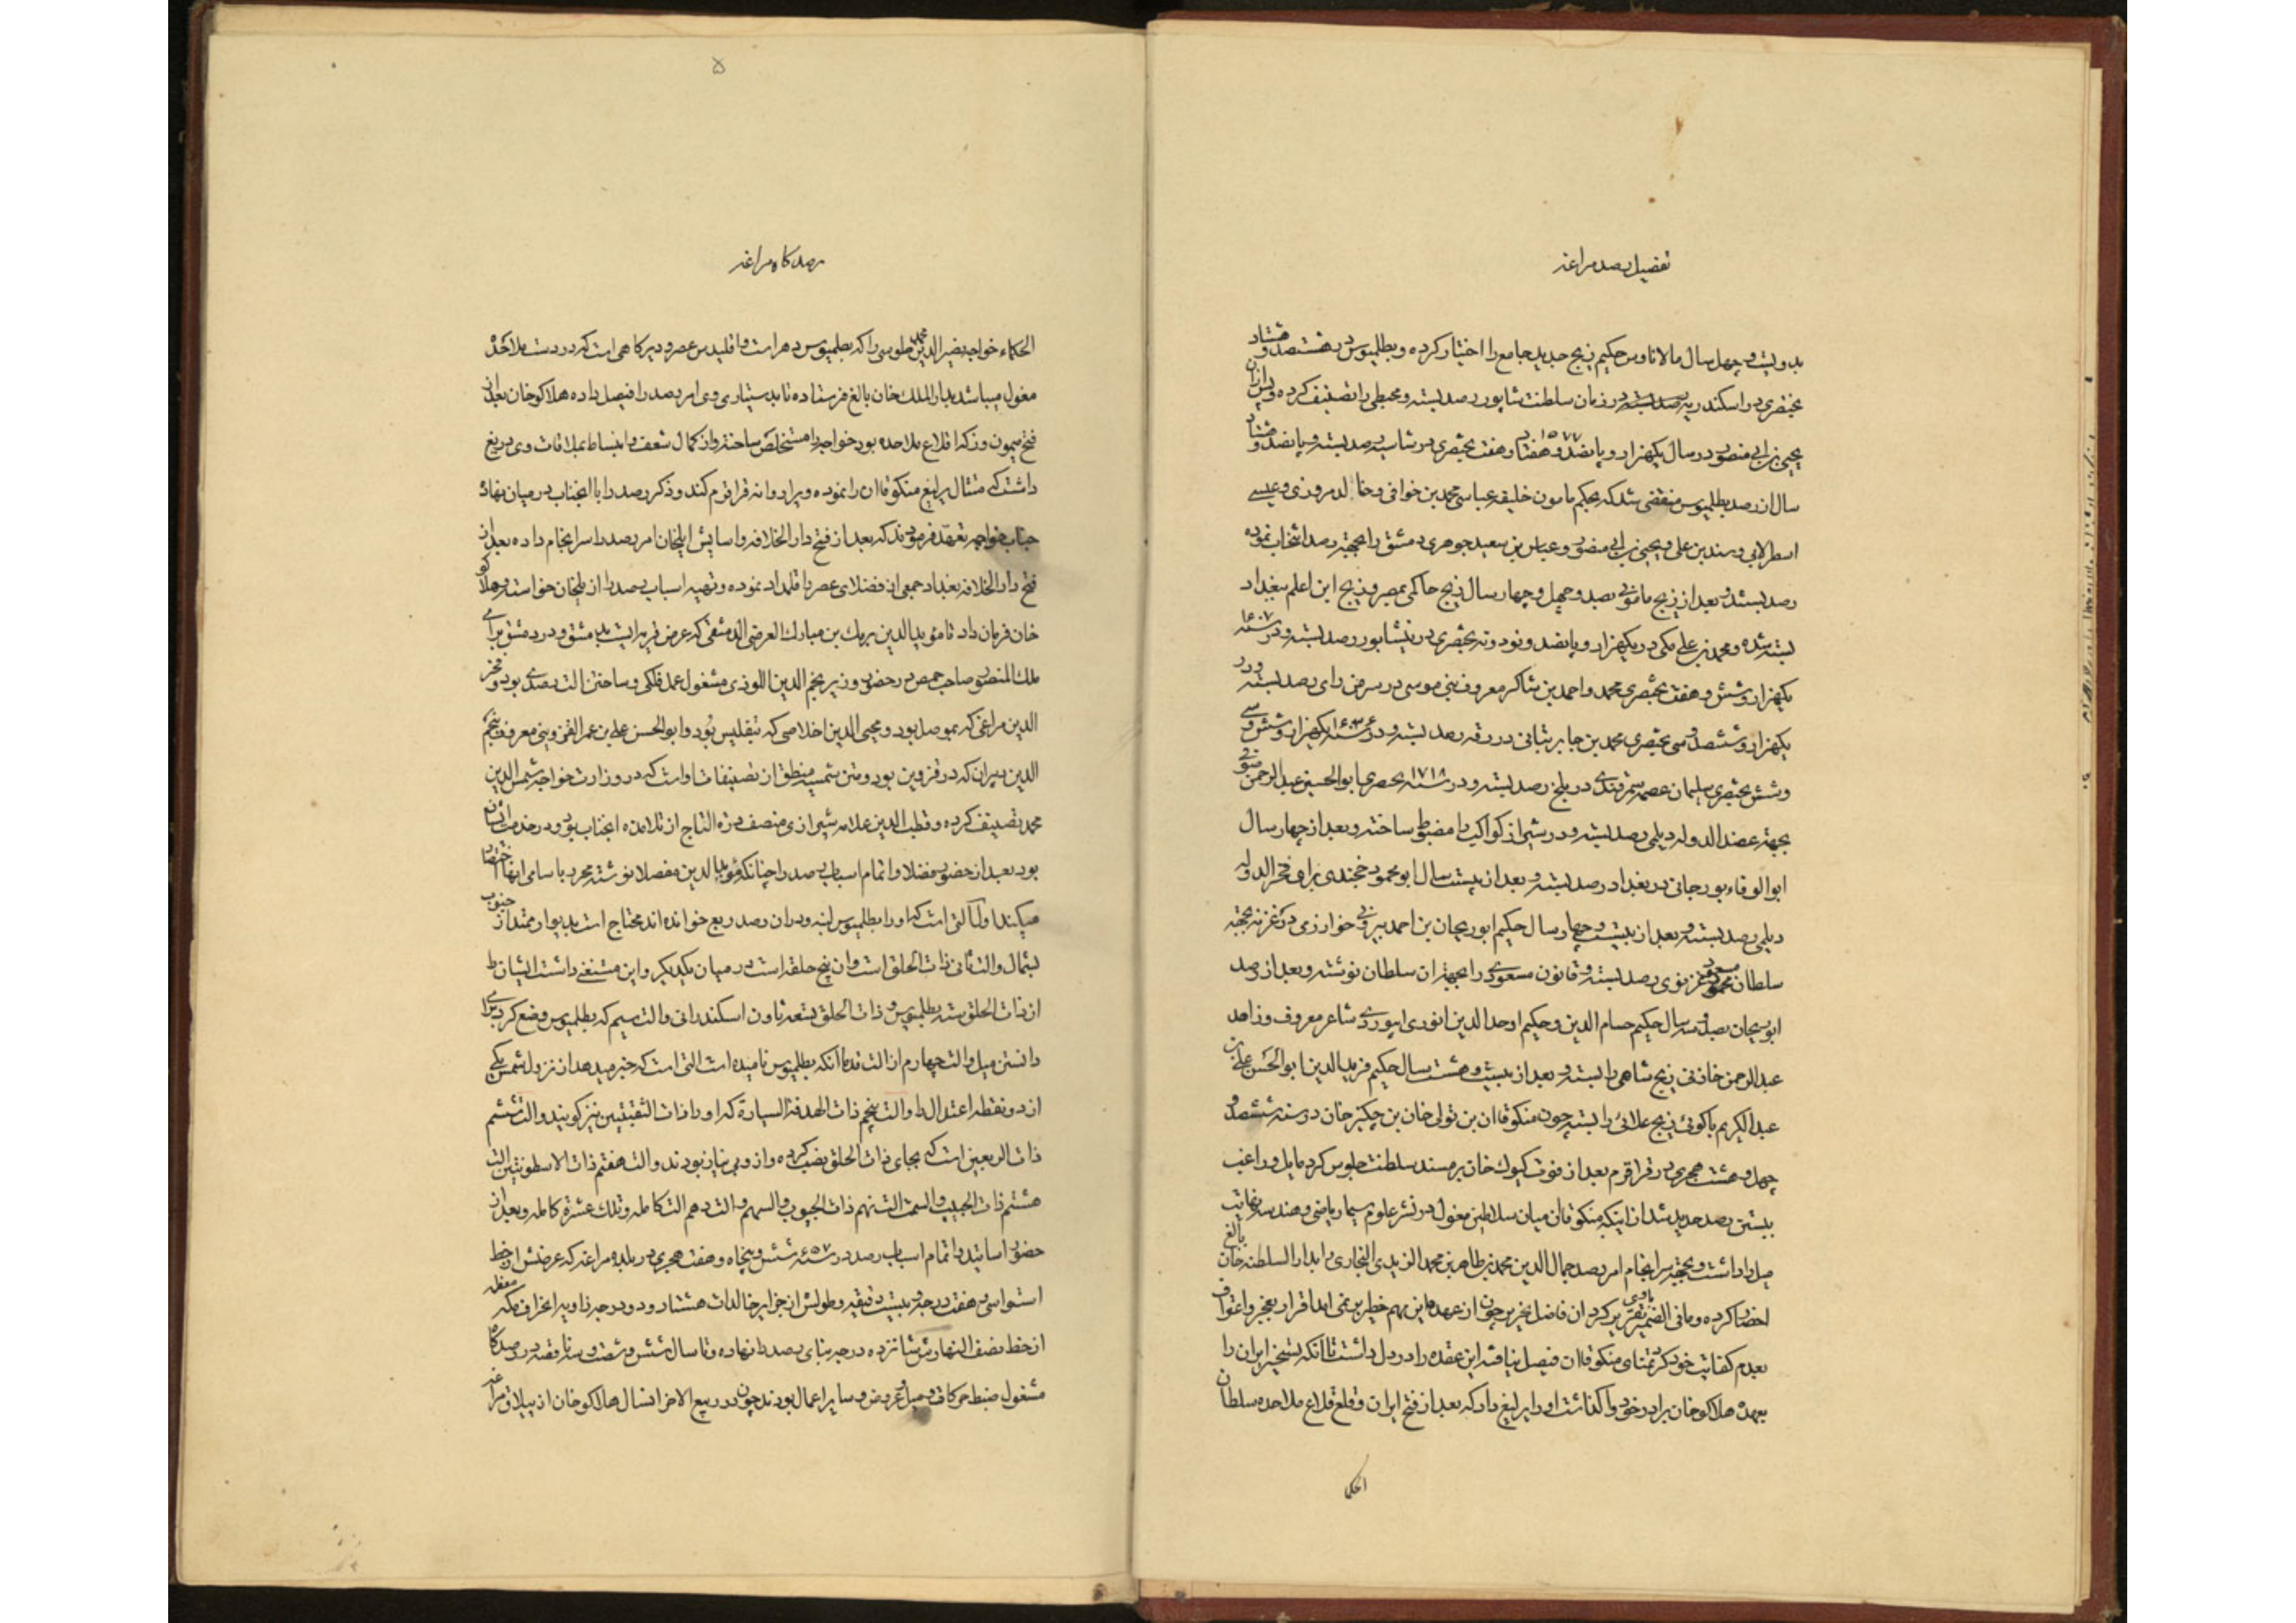 تفضیل رصد مراغه
بدویست و چهل سال مالاناوس حکیم زیج جدید جامع را اختیار کرده و بطلمیوس در هشتصد و هشتاد
بختصری در اسکندریه رصد بسته در زمان سلطنت شاپور رصد بسته و مجسطی را تصنیف کرده و پس از آن
یحیی بن ابی منصور در سال یکهزار و پانصد و هفتاد و هفت ۱۵۷۷ بختصری در شماسیه رصد بسته و پانصد و هشتاد
سال از رصد بطلمیوس منقضی شد که بحکم مامون خلیفه عباسی محمد بن خوافی و خالد مروزی و عیسی
اسطرلابی و سند بن علی و یحیی بن ابی منصور و عباس بن سعید جوهری دمشق را بجهة رصد انتخاب نموده
رصد بستند و بعد از زیج مامونی بصد و چهل و چهار سال زیج حاکمی بمصر و زیج ابن اعلم ببغداد
بسته شده و محمد بن علی مکی در یکهزار و پانصد و نود و نه بختصری در نیشابور رصد بسته و در سنه ۱۶۰۷
یکهزار و شش و هفت بختصری محمد و احمد بن شاکر معروف ببنی موسی در سر من رای رصد بسته و در
یکهزار و ششصد و سی بختصری محمد بن جابر بتانی در رقه رصد بسته و در سنه یکهزار و شش و سی
و شش بختصری سلیمان عصمه سمرقندی در بلخ رصد بسته و در سنه ۱۷۱۸ بحصری ابو الحسین عبد الرحمن صوفی
بجهة عضد الدوله دیلمی رصد بسته و در شیراز کواکب را مضبوط ساخته و بعد از چهار سال
ابو الوفاء بورجانی در بغداد رصد بسته و بعد از بیست سال ابو محمود خجندی برای فخر الدوله
دیلمی رصد بسته و بعد از بیست و چهار سال حکیم ابو ریحان بن احمد بیرونی خوارزمی در غزنه بجهة
سلطان محمود مسعود غزنوی رصد بسته و قانون مسعودی را بجهة ان سلطان نوشته و بعد از رصد
ابو ریحان بصد و سه سال حکیم حسام الدین و حکیم اوحد الدین انوری ابیوردی شاعر معروف و زاهد
عبد الرحمن خازنی زیج شاهی را بسته و بعد از بیست و هشت سال حکیم فرید الدین ابو الحسن علی بن
عبد الکریم باکوئی زیج علائی را بسته چون منکوقاان بن تولی خان بن چنکیز خان در سنه ششصد و
چهل و هشت هجری در قراقرم بعد از فوت کیوک خان بر مسند سلطنت جلوس کرد مایل و راغب
ببستن رصد جدید شد از اینکه منکوقاان میان سلاطین مغول در نشر علوم سیما ریاضی و هندسه بغایت
میل را داشت و بجهة سرانجام امر رصد جمال الدین محمد بن طاهر بن محمد الزیدی البخاری را بدار السلطنه خان بالغ
احضار کرده و مافی الضمیر باوی تقریر کرد ان فاضل نحریر چون از عهده این مهم خطیر برنمی امد اقرار بعجز و اعتراف
بعدم کفایت خود کرد تمنای منکوقاان فیصل نیافته این عقده را در دل داشت تا آنکه تسخیر ایران را
بعهده هلاکو خان برادر خود وا کذاشت او را یرلیغ داد که بعد از فتح ایران و قلع قلاع ملاحده سلطان
الحکما
۵
رصدکاه مراغه
الحکماء خواجه نصیر الدین محمد طوسی را که بطلمیوس دهر است و اقلیدس عصر و دیر کاهی است که در دست ملاحده
مغول میباشد بدار الملک خان بالغ فرستاده تا بدستیاری وی امر رصد را فیصل داده هلاکو خان بعد از
فتح میمون و زکه اقلاع ملاحده بود خواجه را مستخلص ساخته و از کمال شعف و انبساط بملاقات وی دریغ
داشت که متثال یرلیغ منکوقاان را نموده ویرا روانه قراقرم کند و ذکر رصد را با انجناب در میان نهاد
جناب خواجه تعهد فرمودند که بعد از فتح دار الخلافه و اسایش ایلخان امر رصد را سرانجام داده بعد از
فتح دار الخلافه بغداد جمعی از فضلای عصر را قلمداد نموده و تهیه اسباب رصد را از ایلخان خواسته و هلاکو
خان فرمان داد تا مؤید الدین برمک بن مبارک العرضی الدمشقی که عرض قریه ایست بدمشق و در دمشق برای
ملک المنصور صاحب حمص در حضور وزیر نجم الدین اللوذی مشغول عمل فلکی و ساختن الت رصدی بود و فخر
الدین مراغی که بموصل بود و محیی الدین اخلاصی که بتفلیس بود و ابو الحسن علی بن عمر القزوینی معروف بنجم
الدین دبیران که در قزوین بود و متن شمسیه منطق از تصنیفات اوست که در وزارت خواجه شمس الدین
محمد تصنیف کرده و قطب الدین علامه شیرازی مصنف درة التاج از تلامذه انجناب بود و در خدمت ایشان
بود بعد از حضور فضلا و اتمام اسباب رصد را چنانکه مؤید الدین مفصلا نوشته مجرد باسامی انها اختصار
میکند اولا آلتی است که او را بطلمیوس لبنه و در ان رصد ربع خوانده اند محتاج است بدیوار ممتد از جنوب
بشمال و الت ثانی ذات الحلق است و ان پنج حلقه است در میان یکدیکر و این مستغنی داشت ایشان را
از ذات الحلق سته بطلمیوس و ذات الحلق تسعه ثاون اسکندرانی و الت سیم که بطلمیوس وضع کرد برای
دانستن میل و الت چهارم از الت قدما آنکه بطلمیوس نامیده است التی است که خبر میدهد از نزول شمس بیکی
از دو نقطه اعتدال را و الت پنجم ذات الهدفة السیارة که او را ذات الثقبتین نیز کویند و الت ششم
ذات الربعین است که بجای ذات الحلق نصب کرده و از و بی نیاز بودند و الت هفتم ذات الاسطونتین الت
هشتم ذات الجیب و السمت الت نهم ذات الجیوب و السهم و الت دهم الت کامله و تلک عشرة کامله و بعد از
حضور اساتید و اتمام اسباب رصد در سنه ۶۵۷ شش و پنجاه و هفت هجری در بلده مراغه که عرضش از خط
استوا سی و هفت درجه و بیست دقیقه و طولش از جزایر خالدات هشتاد و دو درجه زاویه انحراف مکه معظمه
از خط نصف النهارش شانزده درجه بنای رصد را نهاده و تا سال شش و شصت و سه ناقصه در رصدکاه
مشغول ضبط حرکات و میل و عروض و سایر اعمال بودند چون در ربیع الاخر انسال هلاکو خان از ییلاق مراغه